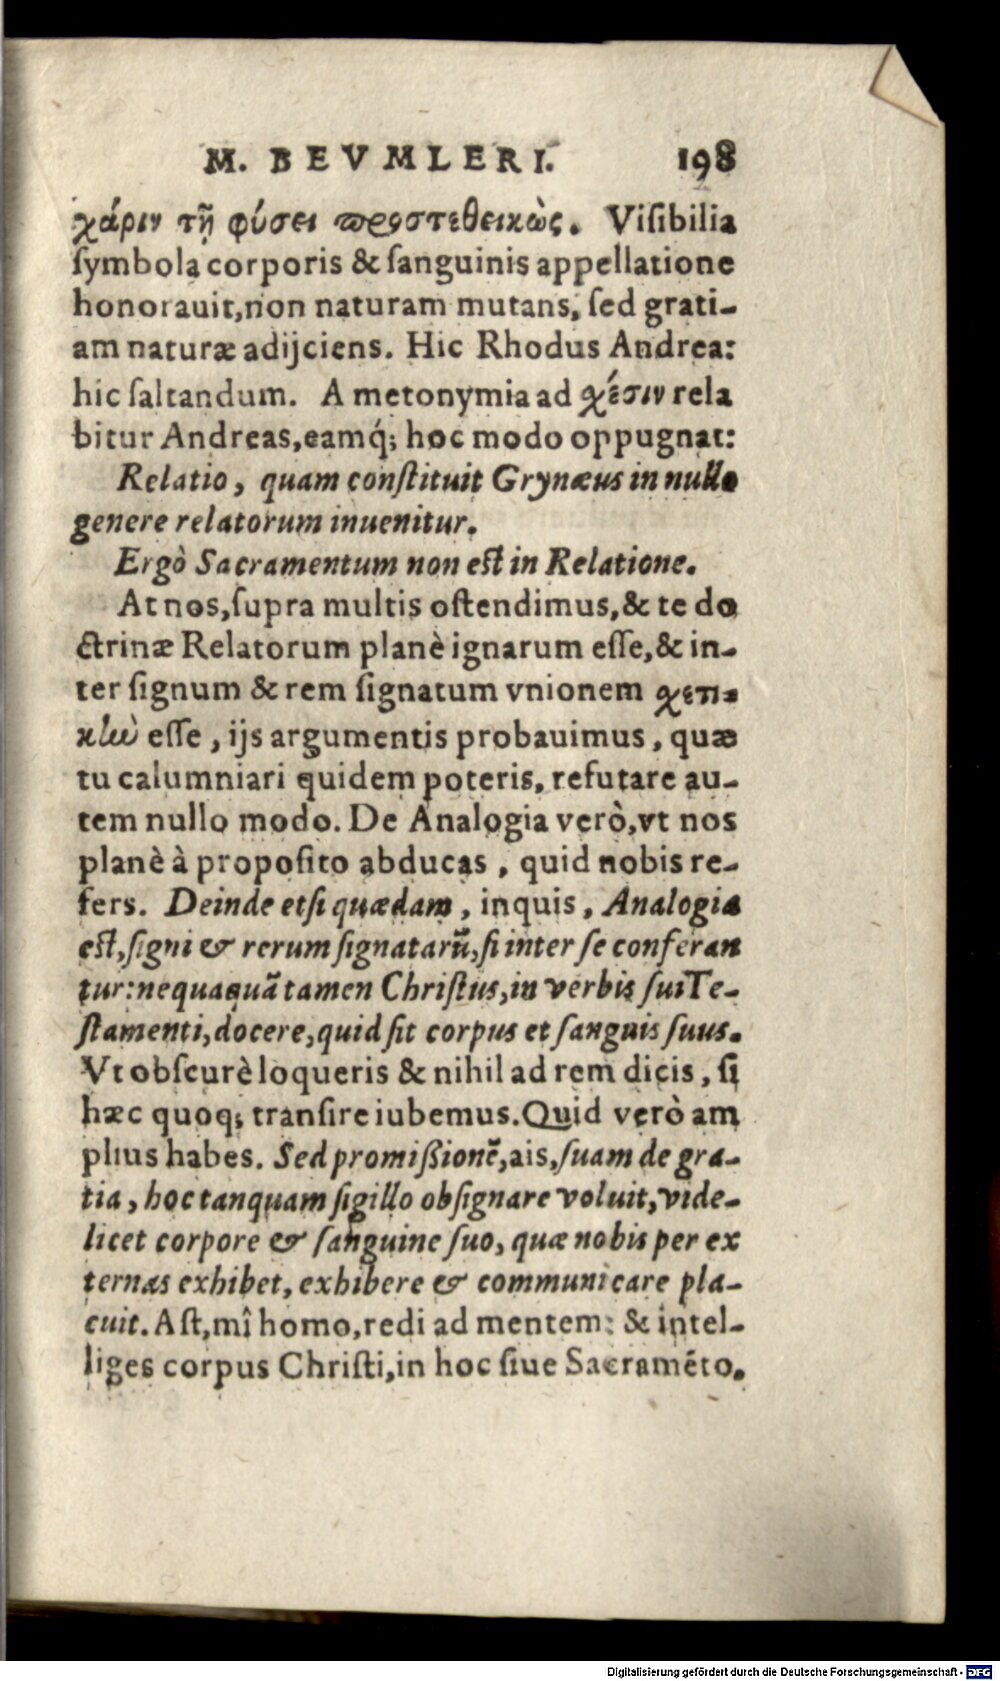 M. BEVMLERI. 198
χάριν τῇ φύσει προστεθεικὼς. Viſibilia
ſymbola corporis & ſanguinis appellatione
honorauit,non naturam mutans, ſed grati-
am naturæ adijciens. Hic Rhodus Andrea:
hic ſaltandum. A metonymia ad χέσιν rela
bitur Andreas,eamq́; hoc modo oppugnat:
Relatio, quam conſtituit Grynæus in nullo
genere relatorum inuenitur.
Ergò Sacramentum non eſt in Relatione.
At nos,ſupra multis oſtendimus,& te do
ctrinæ Relatorum planè ignarum eſſe,& in-
ter ſignum & rem ſignatum vnionem χετι-
κὼ eſſe, ijs argumentis probauimus, quæ
tu calumniari quidem poteris, refutare au-
tem nullo modo. De Analogia verò,vt nos
planè à propoſito abducas, quid nobis re-
fers. Deinde etſi quædam, inquis, Analogia
eſt,ſigni & rerum ſignatarũ,ſi inter ſe conferan
tur:nequaquã tamen Chriſtus,in verbis ſui Te-
ſtamenti,docere,quid ſit corpus et ſanguis ſuus.
Vt obſcurè loqueris & nihil ad rem dicis, ſi
hæc quoq; tranſire iubemus. Quid verò am
plius habes. Sed promißionẽ,ais,ſuam de gra-
tia, hoc tanquam ſigillo obſignare voluit,vide-
licet corpore & ſanguine ſuo, quæ nobis per ex
ternas exhibet, exhibere & communicare pla-
cuit. Aſt,mî homo,redi ad mentem: & intel-
liges corpus Chriſti,in hoc ſiue Sacramẽto.
Digitalisierung gefördert durch die Deutsche Forschungsgemeinschaft - DFG